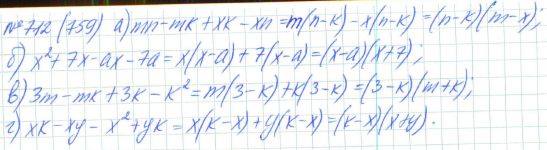 № 712 (759) а) mn-mk+xk-xn=m(n-k)-x(n-k)=(n-k)(m-x);
б) x²+7x-ax-7a=x(x-a)+7(x-a)=(x-a)(x+7);
в) 3m-mk+3k-k²=m(3-k)+k(3-k)=(3-k)(m+k);
г) xk-xy-x²+yk=x(k-x)+y(k-x)=(k-x)(x+y).